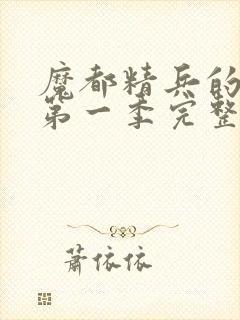 魔都精兵的
第一季完整
萧依依